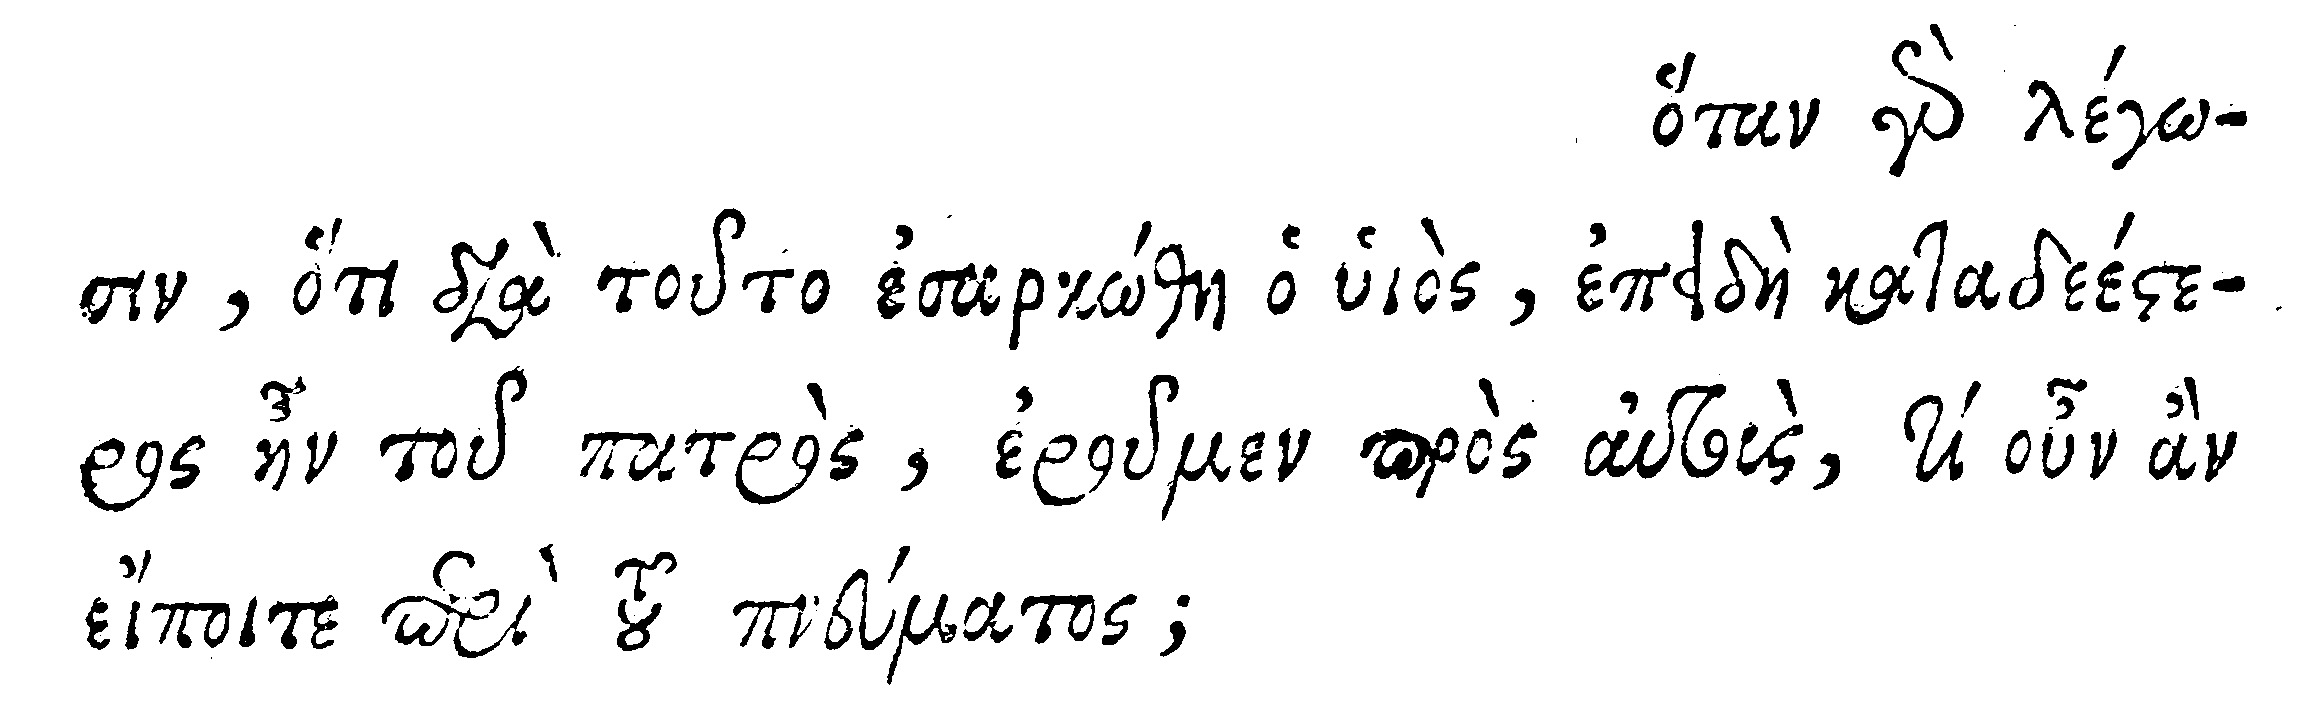 ὅταν γὰρ λέγω-
σιν, ὅτι διὰ τοῦτο ἐσαρκώθη ὁ υἱὸς, ἐπειδὴ καταδεέστε-
ρος ἦν τοῦ πατρὸς, ἐροῦμεν πρὸς αὐτοὺς, τί οὖν ἂν
εἴποιτε περὶ τοῦ πνεύματος;